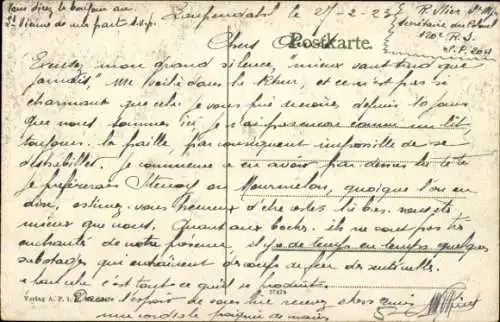 Vous direz le bonjour au
2e Vienne de ma part S.V.P.
le 27-2-23
R.
Secrétaire du Colonel
120e R.I.
S.P. 204
Chers
Postkarte.
Excusez mon grand silence, "mieux vaut tard que
jamais", me voilà dans la Ruhr, et ce n'est pas si
charmant que cela, je vous prie de croire, depuis 10 jours
que nous sommes ici, je n'ai pas encore connu un lit,
toujours la paille, par conséquent impossible de se
déshabiller. Je commence à en avoir par dessus la tête
Je préférerais Stenay ou Mourmelon, quoique l'on en
dise, estimez-vous heureux d'être restés là-bas, vous êtes
mieux que nous. Quant aux boches, ils ne sont pas très
enchantés de notre présence, il y a de temps en temps quelques
sabotages qui entraînent des coups de feu des sentinelles.
c'est tout ce qui se produit.
Verlag A. P. 1.
37478
Dans l'espoir de vous lire recevez chers amis
une cordiale poignée de mains